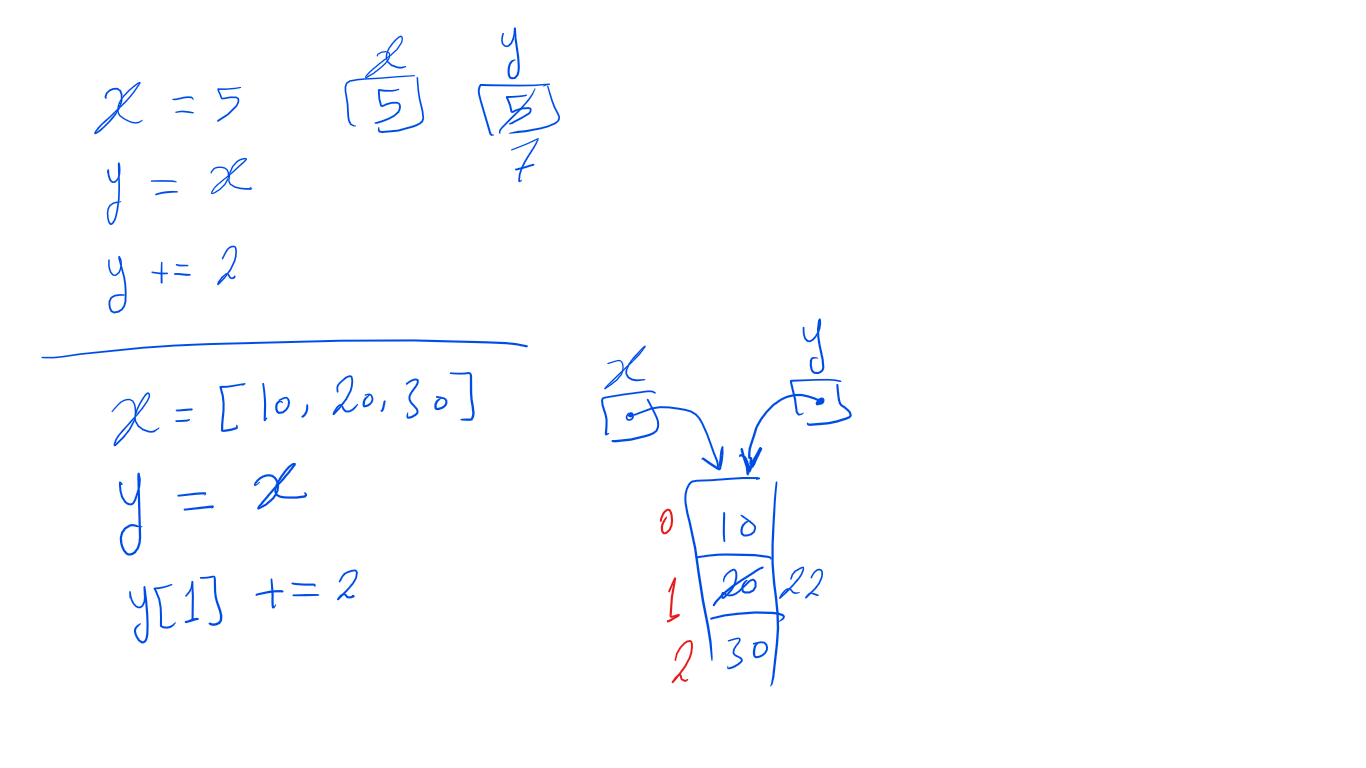 x = 5
y = x
y += 2
x y
5 5
7
x = [10, 20, 30]
y = x
y[1] += 2
x y
0 10
1 20 22
2 30